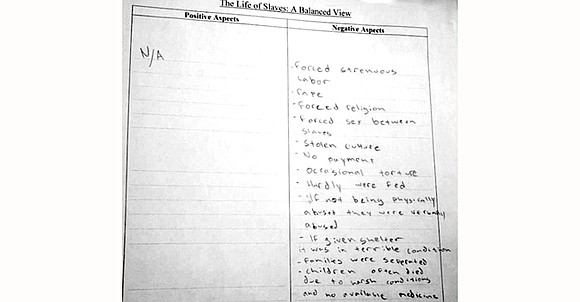 The Life of Slaves: A Balanced View
Positive Aspects
Negative Aspects
N/A
- forced strenuous
labor
- rape
- forced religion
- forced sex between
slaves
- stolen culture
- No payment
- occasional torture
- Hardly were fed
- If not being physically
abused they were verbally
abused
- If given shelter
it was in terrible condition
- families were seperated
- children often died
due to harsh conditions
and no available medicine